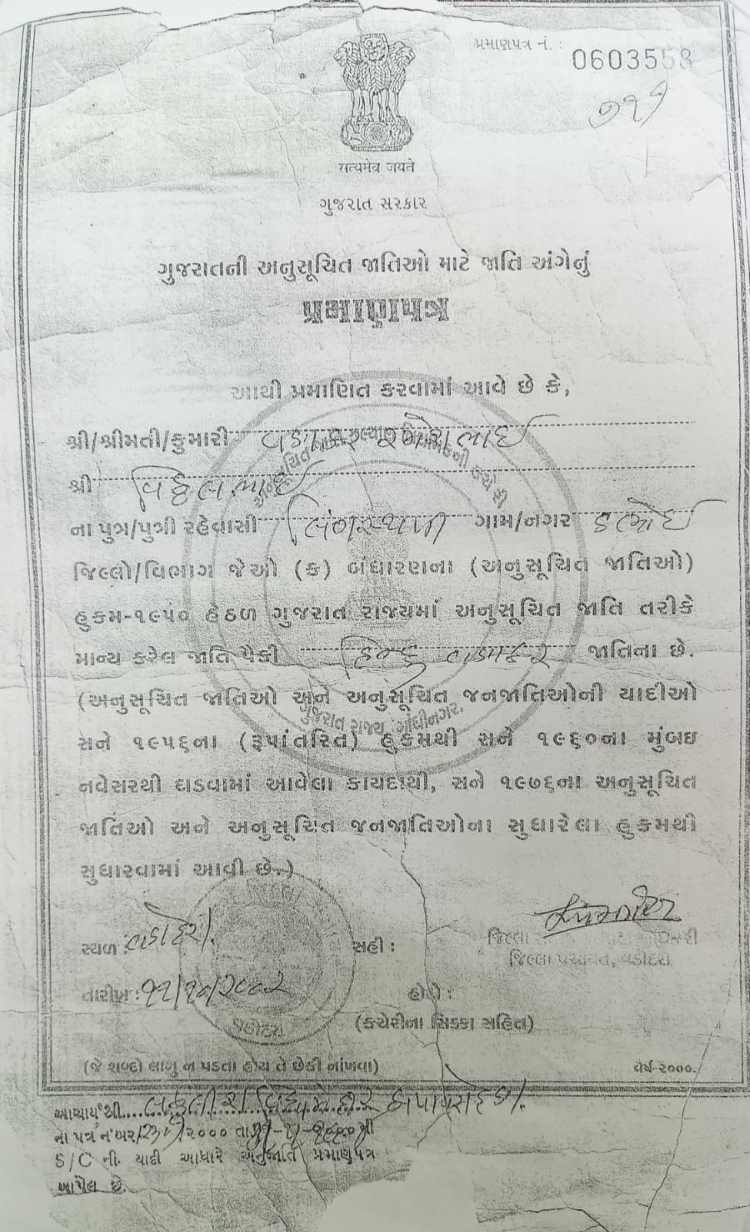 પ્રમાણપત્ર નં. :
0603558
સત્યમેવ જયતે
ગુજરાત સરકાર
ગુજરાતની અનુસૂચિત જાતિઓ માટે જાતિ અંગેનું
પ્રમાણપત્ર
આથી પ્રમાણિત કરવામાં આવે છે કે,
શ્રી/શ્રીમતી/કુમારી વણકર રમેશભાઈ
શ્રી વિઠ્ઠલભાઈ
ના પુત્ર/પુત્રી રહેવાસી ગામ/નગર ડભોઈ
જિલ્લો/વિભાગ જેઓ (ક) બંધારણના (અનુસૂચિત જાતિઓ)
હુકમ-૧૯૫૦ હેઠળ ગુજરાત રાજ્યમાં અનુસૂચિત જાતિ તરીકે
માન્ય કરેલ જાતિ પૈકી હિન્દુ વણકર જાતિના છે.
(અનુસૂચિત જાતિઓ અને અનુસૂચિત જનજાતિઓની યાદીઓ
સને ૧૯૫૬ના (રૂપાંતરિત) હુકમથી સને ૧૯૬૦ના મુંબઇ
નવેસરથી ઘડવામાં આવેલા કાયદાથી, સને ૧૯૭૬ના અનુસૂચિત
જાતિઓ અને અનુસૂચિત જનજાતિઓના સુધારેલા હુકમથી
સુધારવામાં આવી છે.)
સ્થળ : વડોદરા. સહી :
જિલ્લા પંચાયત, વડોદરા
તારીખ : ૧૧/૧૦/૨૦૦૨ હોદ્દો :
(કચેરીના સિક્કા સહિત)
(જે શબ્દો લાગુ ન પડતા હોય તે છેકી નાંખવા) વર્ષ-૨૦૦૦.
આચાર્યશ્રી....
ના પત્ર નંબર
S/C ની યાદી આધારે અનુજાતિ પ્રમાણપત્ર
આપેલ છે.